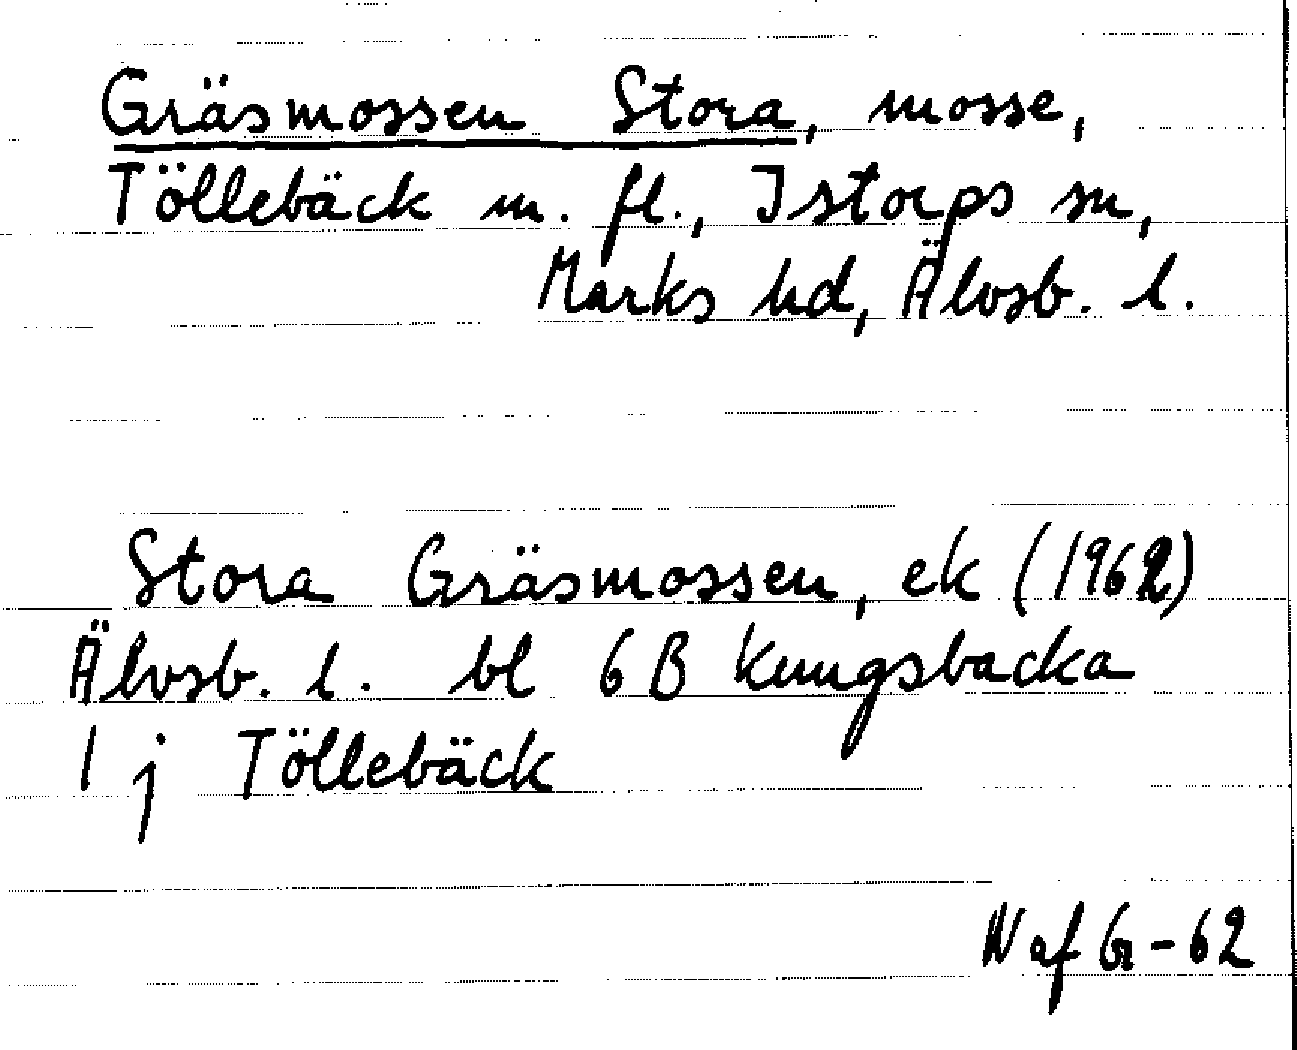 Gräsmossen Stora, mosse,
Töllebäck m. fl., Istorps sn,
Marks hd, Älvsb. l.
Stora Gräsmossen, ek (1962)
Älvsb. l. bl 6 B Kungsbacka
1 j Töllebäck
N af Gr-62